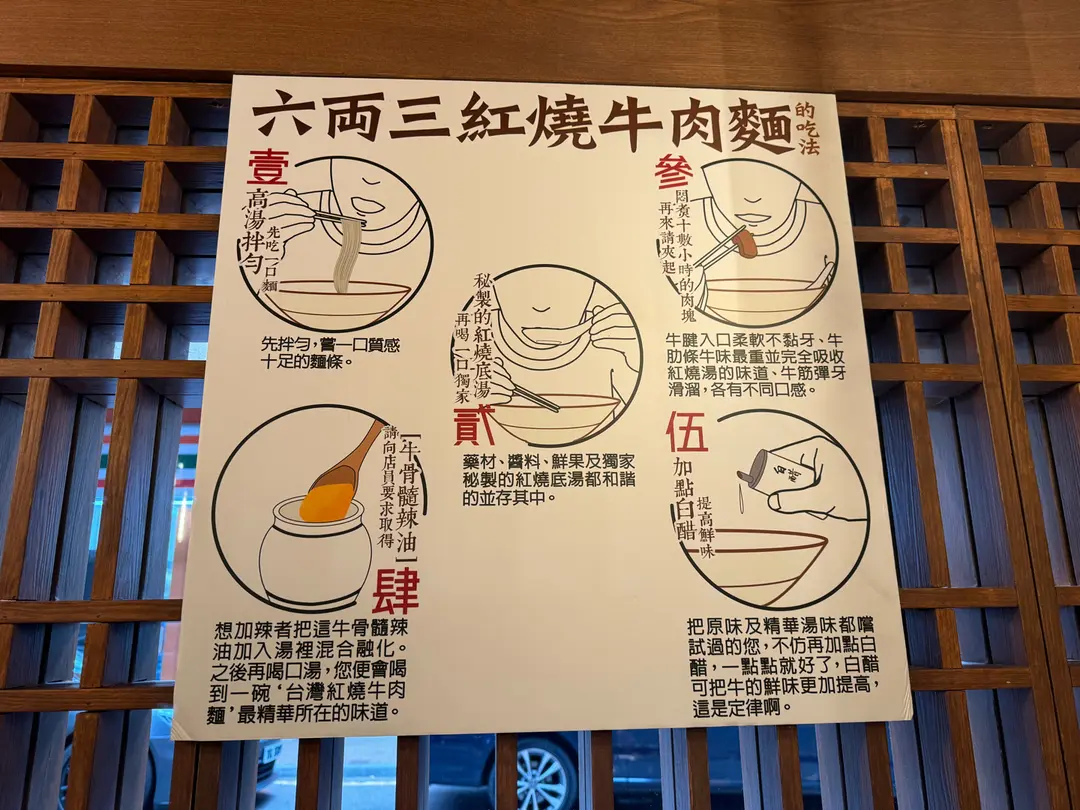 六両三紅燒牛肉麵的吃法
壹
高湯拌勻
先吃一口麵
先拌勻，嘗一口質感
十足的麵條。
貳
秘製的紅燒底湯
再喝一口獨家
藥材、醬料、鮮果及獨家
秘製的紅燒底湯都和諧
的並存其中。
參
悶煮十數小時的肉塊
再來請夾起
牛腱入口柔軟不黏牙、牛
肋條牛味最重並完全吸收
紅燒湯的味道、牛筋彈牙
滑溜，各有不同口感。
肆
[牛骨髓辣油]
請向店員要求取得
想加辣者把這牛骨髓辣
油加入湯裡混合融化。
之後再喝口湯，您便會喝
到一碗‘台灣紅燒牛肉
麵’最精華所在的味道。
伍
加點白醋
提高鮮味
白醋
把原味及精華湯味都嚐
試過的您，不仿再加點白
醋，一點點就好了，白醋
可把牛的鮮味更加提高，
這是定律啊。